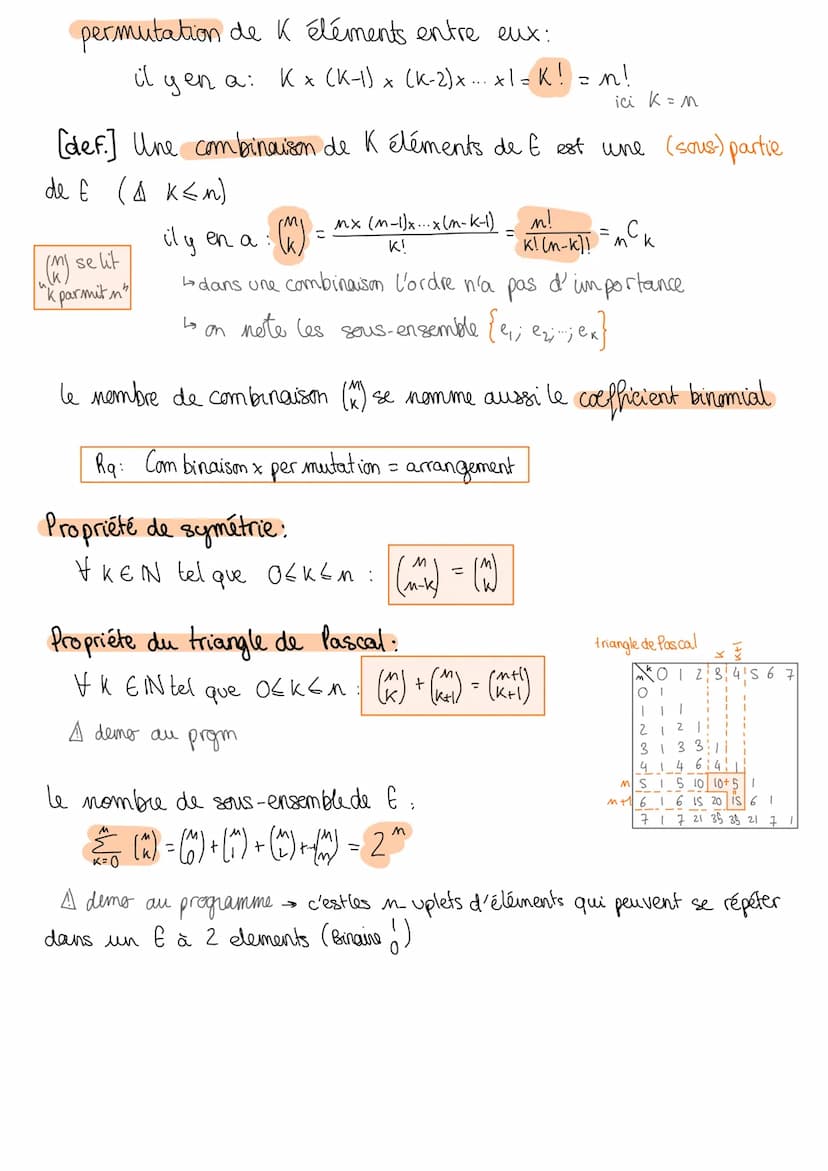 permutation de K éléments entre eux :
il y en a : K x (K-1) x (K-2) x ... x 1 = K! = n!
ici K = n
[def.] Une combinaison de K éléments de E est une (sous-) partie
de E (⚠ K ≤ n)
il y en a : (n K) = n x (n-1) x ... x (n-k-1) / K! = n! / K! (n-K)! = nCk
(n K) se lit
"k parmit n"
↳ dans une combinaison l'ordre n'a pas d'importance
↳ on note les sous-ensemble {e1; e2; ...; eK}
le nombre de combinaison (n K) se nomme aussi le coefficient binomial
Rq : Combinaison x permutation = arrangement
Propriété de symétrie :
∀ K ∈ ℕ tel que 0 ≤ K ≤ n : (n n-K) = (n K)
Propriéte du triangle de Pascal :
∀ K ∈ ℕ tel que 0 ≤ K ≤ n : (n K) + (n K+1) = (n+1 K+1)
⚠ demo au prgm
triangle de Pascal
K K+1
n K 0 1 2 3 4 5 6 7
0 1
1 1 1
2 1 2 1
3 1 3 3 1
4 1 4 6 4 1
n 5 1 5 10 10 + 5 1
n+1 6 1 6 15 20 15 6 1
7 1 7 21 35 35 21 7 1
le nombre de sous-ensemble de E :
n ∑ K=0 (n K) = (n 0) + (n 1) + (n 2) + ... + (n n) = 2^n
⚠ demo au programme → c'est les n-uplets d'éléments qui peuvent se répéter
dans un E à 2 elements (Binaire 1 0)